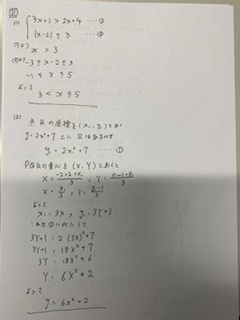 1
(1) { 3x+1 > 2x+4 ‥‥①
|x-2| ≦ 3 ‥‥②
①より x > 3
②より -3 ≦ x-2 ≦ 3
-1 ≦ x ≦ 5
よって
3 < x ≦ 5
(2)
点Rの座標を(x₁, y₁)とおく
y=2x²+7上にRはあるので
y₁ = 2x₁²+7 ‥‥①
PQRの重心を(X, Y)とおくと
X = , Y =
X = x₁/3 , Y = y₁-1/3
よって
x₁ = 3X , y₁ = 3Y+1
これを①に代入して
3Y+1 = 2(3X)²+7
3Y+1 = 18X²+7
3Y = 18X²+6
Y = 6X²+2
よって
y = 6x²+2